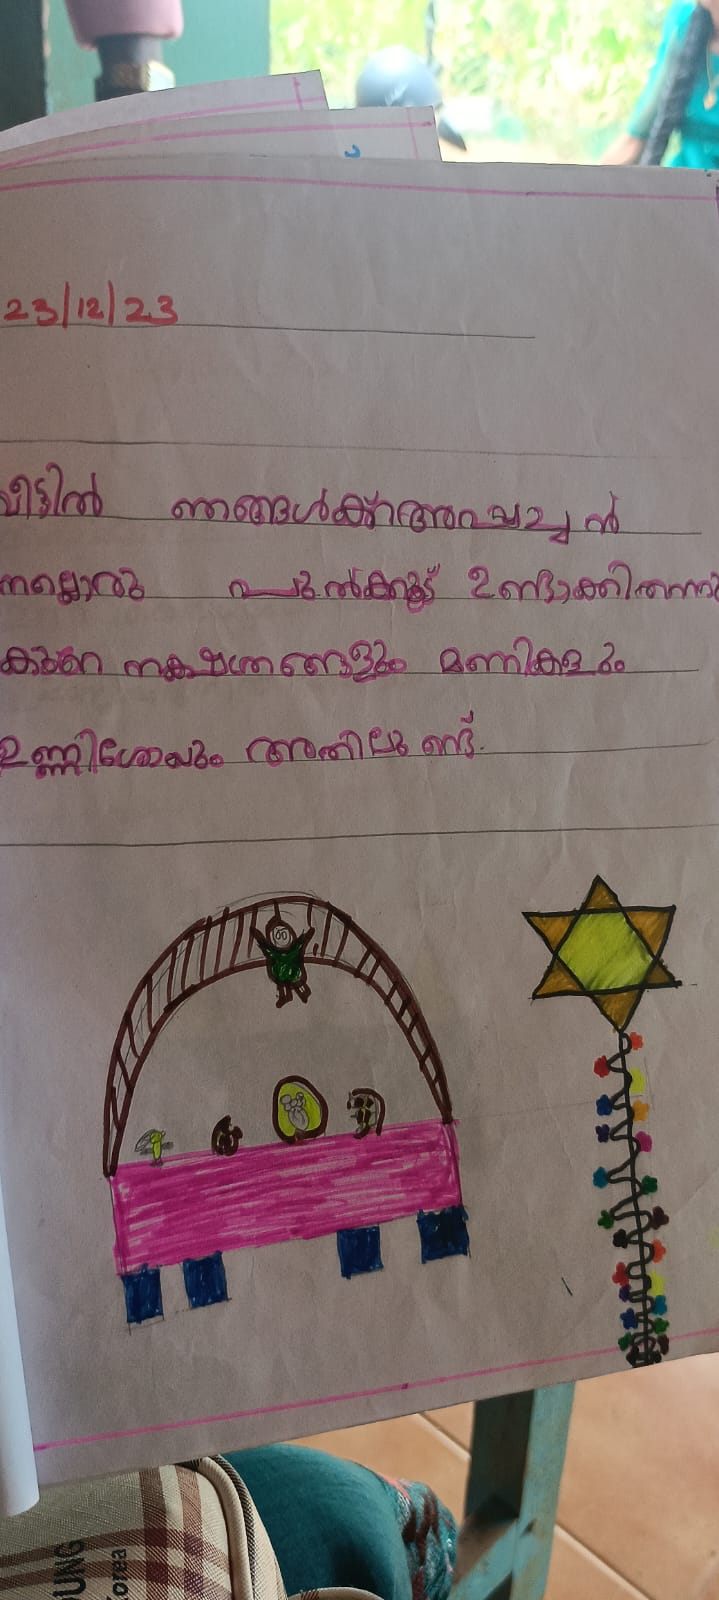 23/12/23
വീട്ടിൽ ഞങ്ങൾക്ക് അപ്പച്ചൻ
നല്ലൊരു പുൽക്കൂട് ഉണ്ടാക്കിതന്നു
കുറെ നക്ഷത്രങ്ങളും മണികളും
ഉണ്ണിശോയും അതിലുണ്ട്.
UNG
Korea